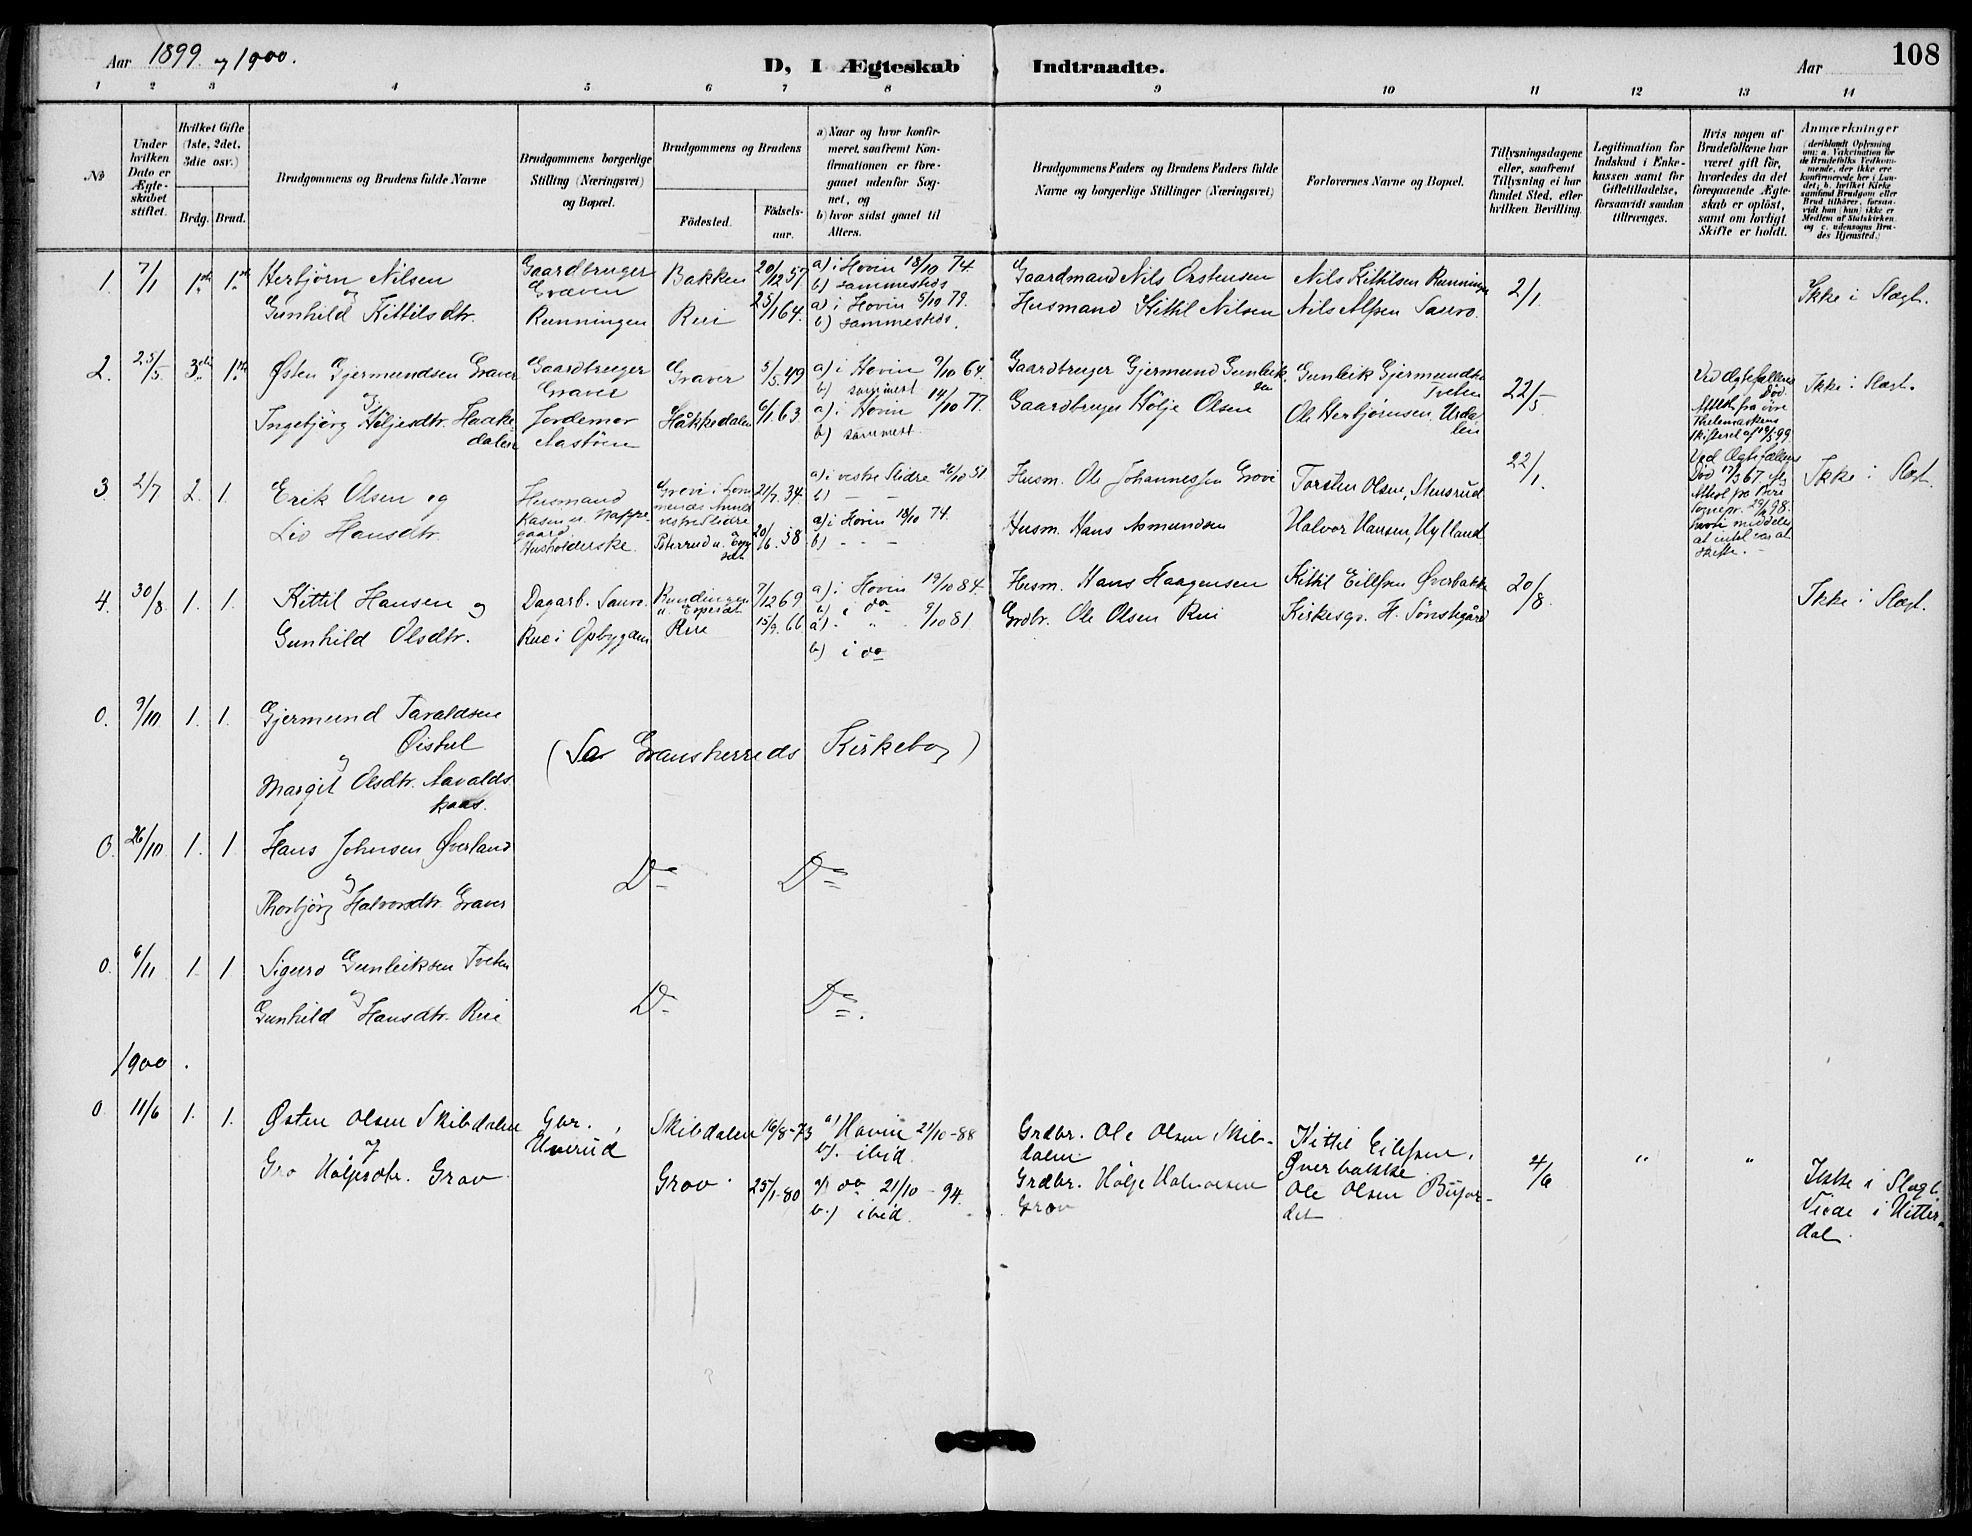 Aar 1899 og 1900.
D, I Ægteskab Indtraadte.
Aar
108
1 2 3 4 5 6 7 8 9 10 11 12 13 14
No
Under hvilken Dato er Ægteskabet stiftet.
Hvilket Gifte (1ste, 2det, 3die osv.)
Brdg. Brud.
Brudgommens og Brudens fulde Navne
Brudgommens borgerlige Stilling (Næringsvei) og Bopæl.
Brudgommens og Brudens
Fødested.
Fødselsaar.
a) Naar og hvor konfirmeret, saafremt Konfirmationen er foregaaet udenfor Sognet, og
b) hvor sidst gaaet til Alters.
Brudgommens Faders og Brudens Faders fulde Navne og borgerlige Stillinger (Næringsvei)
Forlovernes Navne og Bopæl.
Tillysningsdagene eller, saafremt Tillysning ei har fundet Sted, efter hvilken Bevilling.
Legitimation for Indskud i Enkekassen samt for Giftetilladelse, forsaavidt saadan tiltrænges.
Hvis nogen af Brudefolkene har været gift før, hvorledes da det foregaaende Ægteskab er opløst, samt om lovligt Skifte er holdt.
Anmærkninger
(deriblandt Oplysning om: a. Vakcination for de Brudefolks Vedkommende, der ikke ere konfirmerede her i Landet; b. hvilket Kirkesamfund Brudgom eller Brud tilhører, forsaavidt han (hun) ikke er Medlem af Statskirken, og c. udensogns Brudes Hjemsted.)
1. 7/1 1ste 1ste Herbjörn Nilsen Gaardbruger Bakken 20/12 57 a) i Hovin 18/10 74. Gaardmand Nils Østensen Nils Kittilsen Runningen 2/1. Ikke i Slægt.
og Graven b) sammesteds
Gunhild Kittilsdtr. Runningen Rui 25/1 64. a) i Hovin 5/10 79. Husmand Kittil Nilsen Nils Alfsen Sauro.
b) sammesteds.
2. 25/5 3die 1ste Østen Gjermundsen Graver Gaardbruger Graver 5/5 49 a) i Hovin 9/10 64. Gaardbruger Gjermund Gunleiksen Gunleik Gjermundsen Tveten 22/5 Ved Ægtefællens Død. Ikke i Slægt.
og Graver b) sammest.
Ingebjörg Høljesdtr. Haakedalen Jordemor Håkkedalen 6/1 63. a) i Hovin 14/10 77. Gaardbruger Hølje Olsen Ole Herbjørnsen Urdalen Attest fra øvre Thelemarkens Skifteret af 19/5 99.
b) sammest.
3. 2/7 2. 1. Erik Olsen og Husmand 21/7. 34. a) i vestre Slidre 26/10 51 Husm. Ole Johannessen Grovi Torsten Olsen, Stensrud 22/1. Ved Ægtefællens Død Ikke i Slægt.
b) – –
Liv Hansdtr. Husholderske. 20/6. 58 a) i Hovin 18/10 74. Husm. Hans Asmundsen Halvor Hansen, Hylland
b) – – –
4. 30/8 1. 1. Kittil Hansen og Dagarb. Sauro. 7/12 69 a) i Hovin 19/10 84. Husm. Hans Haagensen Kittil Eilefsen Øverbakke 20/8. Ikke i Slægt.
b) i do
Gunhild Olsdtr. Rue i Opbygden Rui 15/9. 66 a) " " 9/10 81 Grdbr. Ole Olsen Rui Kirkesgr. H. Sønstegård
b) i do
0. 9/10 1. 1. Gjermund Taraldsen Øistul
og (Se Gransherreds Kirkebog)
Margit Olsdtr. Aavaldskaas.
0. 26/10 1. 1. Hans Johnsen Øverland
og Do Do
Thorbjörg Halvorsdtr. Graver
0. 6/11 1. 1 Sigurd Gunleiksen Tveten
og Do Do.
Gunhild Hansdtr. Rui
1900.
0 11/6 1. 1. Østen Olsen Skibdalen Gbr. Skibdalen 16/8-73 a) Hovin 21/10-88 Grdbr. Ole Olsen Skibdalen Kittil Eilefsen, Øverbakke 4/6 " "
og Uverud b). ibid.
Gro Høljesdtr. Grov Grov. 25/1-80 a) do 21/10 - 94. Grdbr. Hølje Halvorsen Grov Ole Olsen Bufordet Ikke i Slægt. Viede i Hitterdal.
b.) ibid.